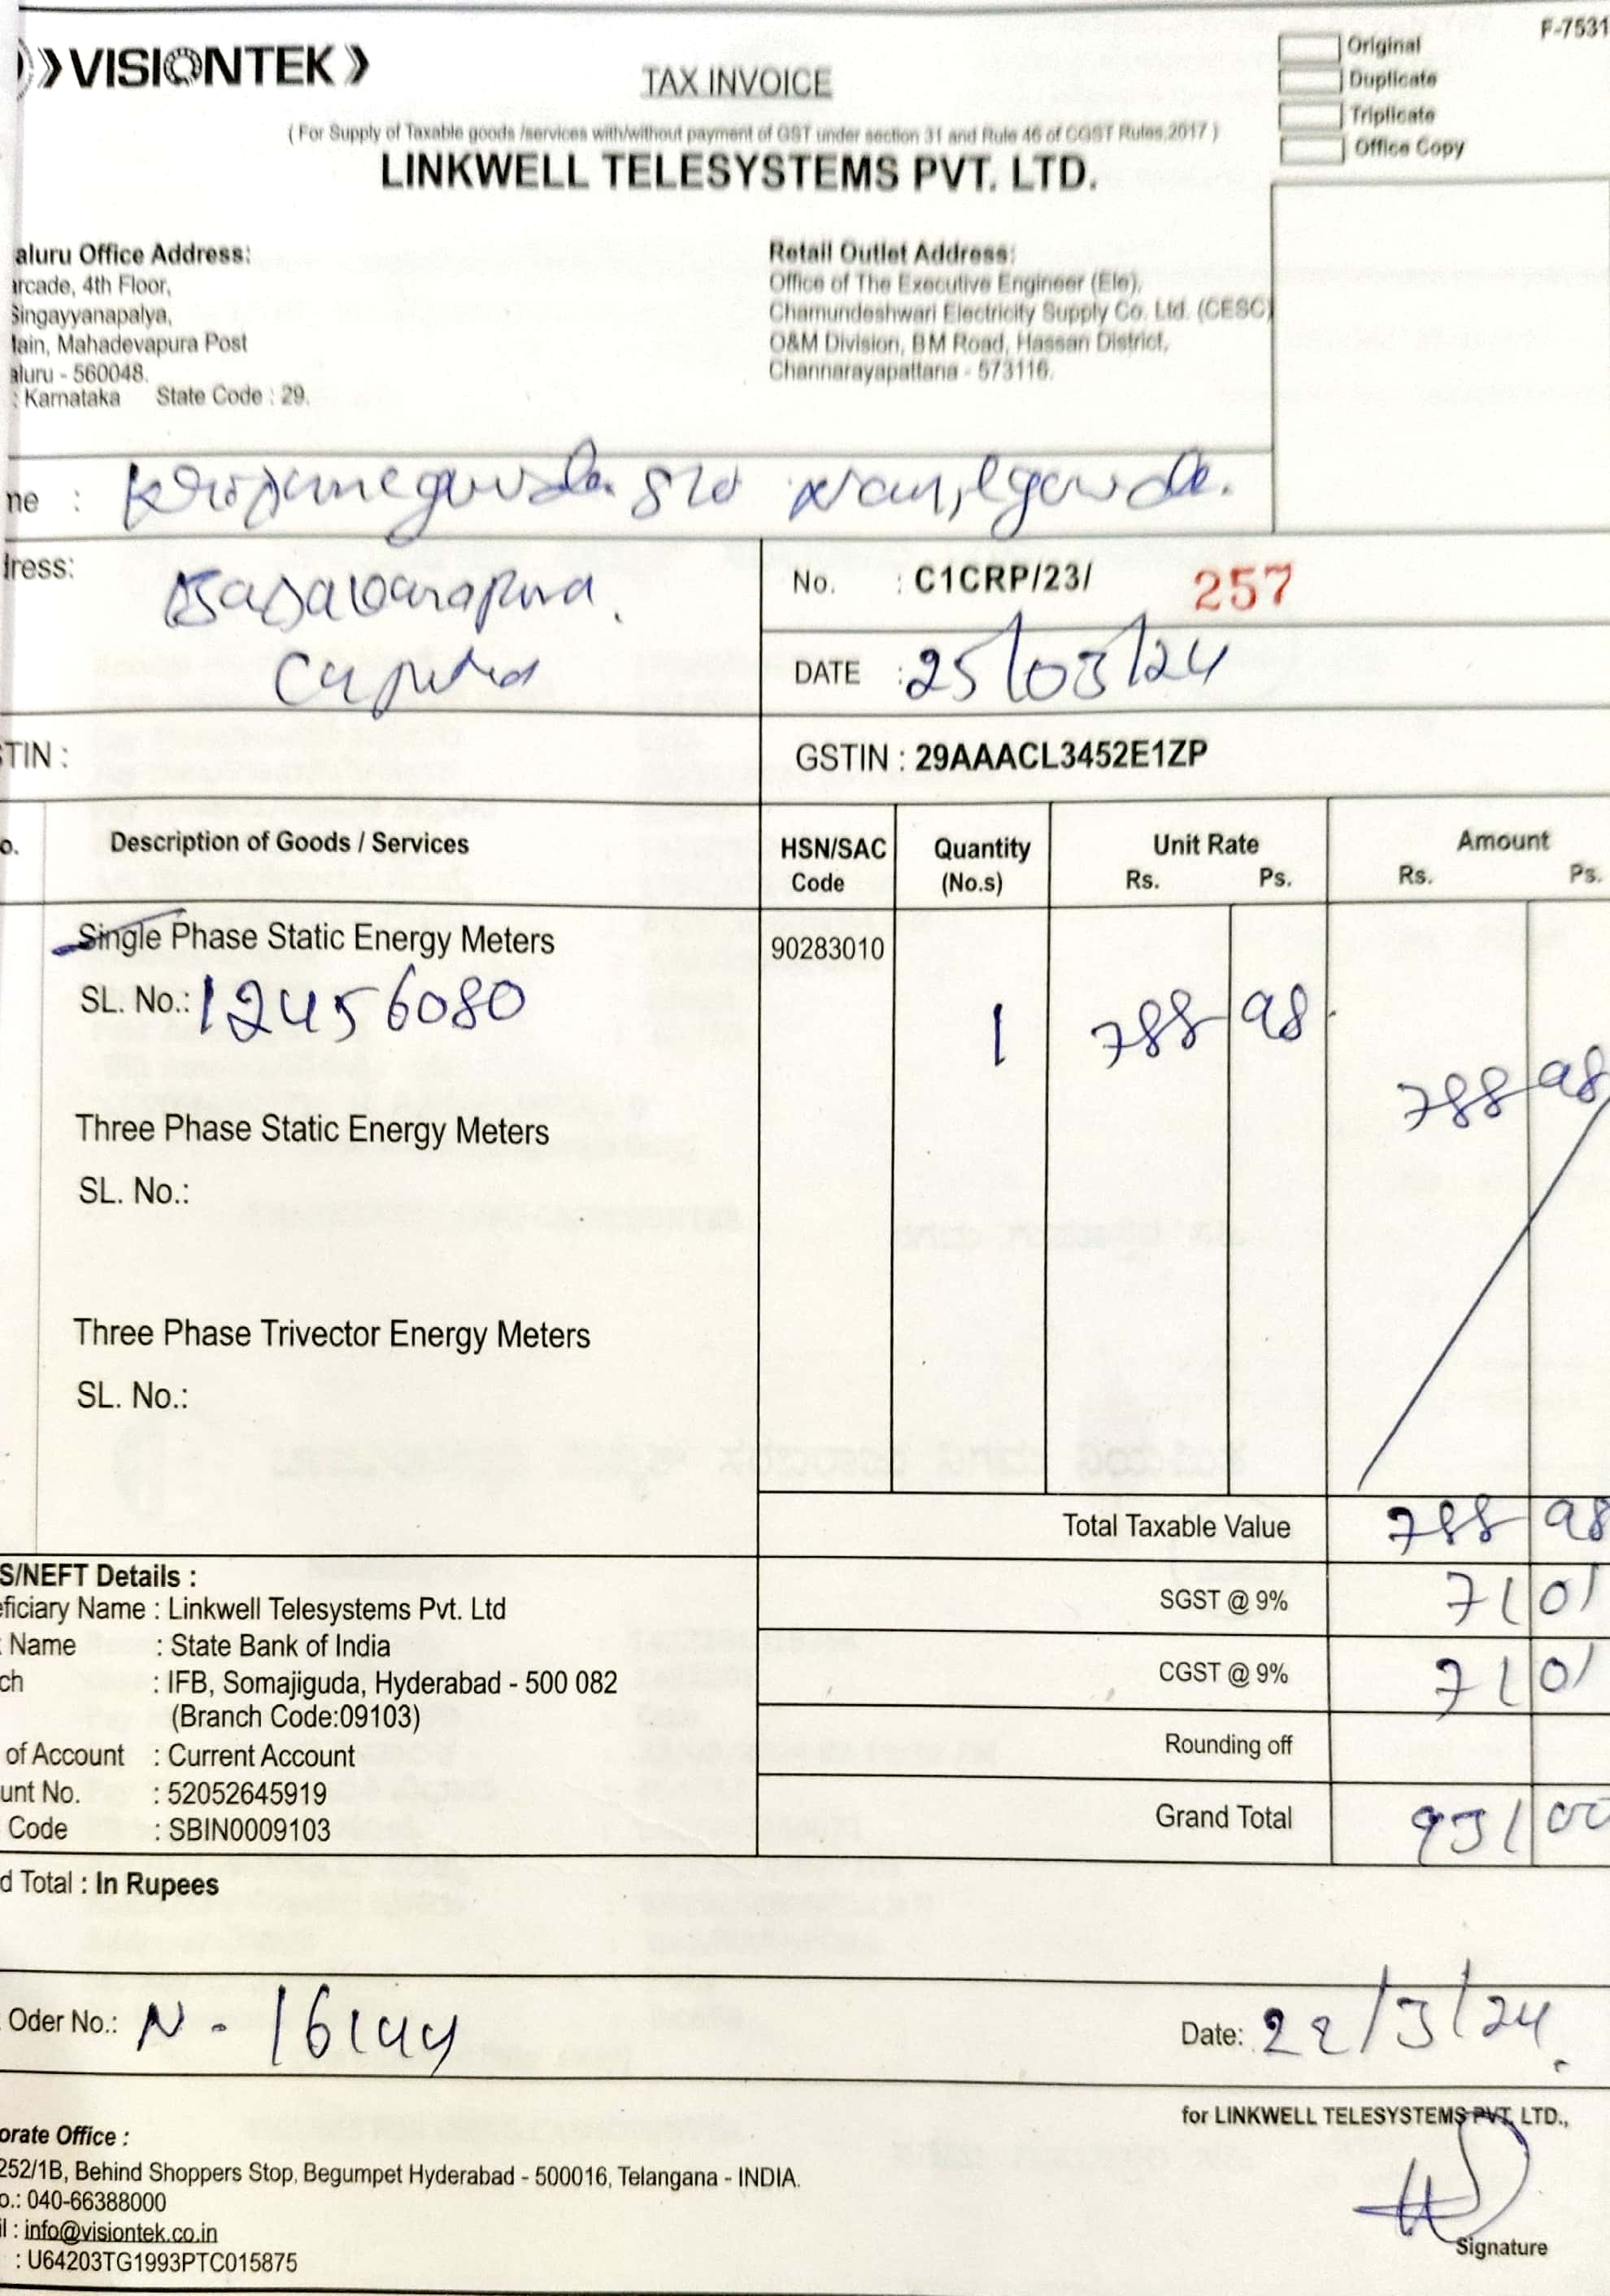 VISIONTEK
TAX INVOICE
F-7531
Original
Duplicate
Triplicate
Office Copy
( For Supply of Taxable goods /services with/without payment of GST under section 31 and Rule 46 of CGST Rules,2017 )
LINKWELL TELESYSTEMS PVT. LTD.
aluru Office Address:
arcade, 4th Floor,
Singayyanapalya,
lain, Mahadevapura Post
aluru - 560048.
: Karnataka State Code : 29.
Retail Outlet Address:
Office of The Executive Engineer (Ele),
Chamundeshwari Electricity Supply Co. Ltd. (CESC)
O&M Division, BM Road, Hassan District,
Channarayapattana - 573116.
me :
dress:
No. : C1CRP/23/ 257
DATE : 25/03/24
STIN :
GSTIN : 29AAACL3452E1ZP
o. Description of Goods / Services HSN/SAC Code Quantity (No.s) Unit Rate Rs. Ps. Amount Rs. Ps.
Single Phase Static Energy Meters 90283010
SL. No.: 12456080 1 788 98 788 98
Three Phase Static Energy Meters
SL. No.:
Three Phase Trivector Energy Meters
SL. No.:
Total Taxable Value 788 98
SGST @ 9% 71 01
CGST @ 9% 71 01
Rounding off
Grand Total 931 00
S/NEFT Details :
eficiary Name : Linkwell Telesystems Pvt. Ltd
Name : State Bank of India
ch : IFB, Somajiguda, Hyderabad - 500 082
(Branch Code:09103)
of Account : Current Account
unt No. : 52052645919
Code : SBIN0009103
d Total : In Rupees
Oder No.: N - 16144
Date: 22/3/24.
for LINKWELL TELESYSTEMS PVT. LTD.,
Signature
orate Office :
252/1B, Behind Shoppers Stop, Begumpet Hyderabad - 500016, Telangana - INDIA.
o.: 040-66388000
il : info@visiontek.co.in
: U64203TG1993PTC015875